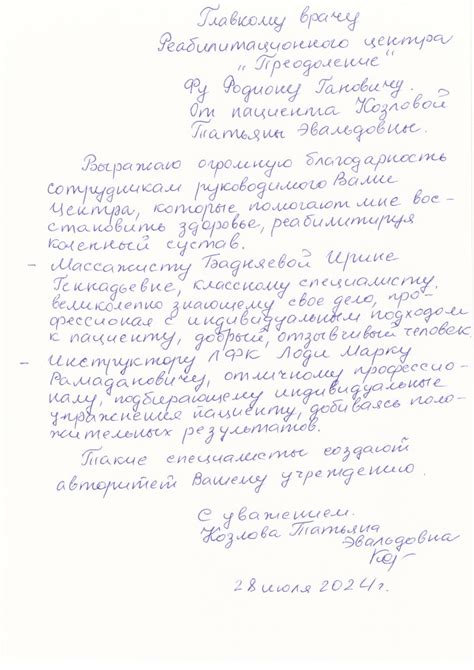 Главному врачу
Реабилитационного центра
„Преодоление"
Фу Родиону Гановичу.
От пациента Козловой
Татьяны Эвальдовны.
Выражаю огромную благодарность
сотрудникам руководимого Вами
Центра, которые помогают мне вос-
становить здоровье, реабилитируя
коленный сустав.
- Массажисту Бадняевой Ирине
Геннадьевне, классному специалисту,
великолепно знающему свое дело, про-
фессионал с индивидуальным подходом
к пациенту, добрый, отзывчивый человек.
- Инструктору ЛФК Лоди Марку
Рамадановичу, отличному професcио-
налу, подбирающему индивидуальные
упражнения пациенту, добиваясь поло-
жительных результатов.
Такие специалисты создают
авторитет Вашему учреждению.
С уважением.
Козлова Татьяна
Эвальдовна
28 июля 2024 г.